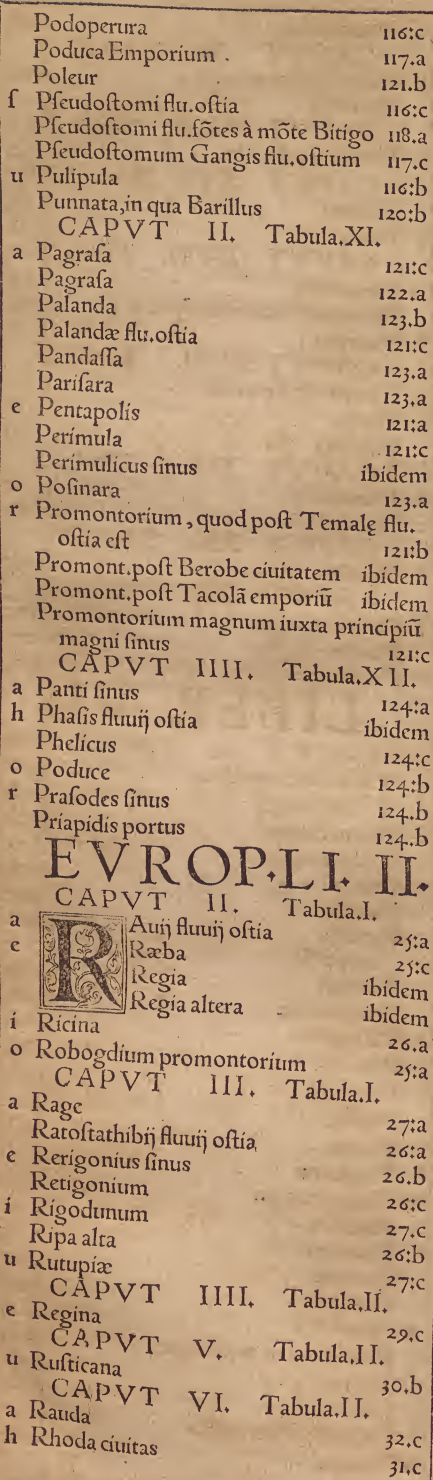 Podoperura 116:c
Poduca Emporium . 117.a
Poleur 121.b
ſ Pſeudoſtomi flu.oſtia 116:c
Pſeudoſtomi flu.fõtes à mõte Bitigo 118.a
Pſeudoſtomum Gangis flu.oſtium 117.c
u Pulipula 116:b
Punnata,in qua Barillus 120:b
CAPVT II. Tabula.XI.
a Pagraſa 121:c
Pagraſa 122.a
Palanda 123.b
Palandæ flu.oſtia 121:c
Pandaſſa 123.a
Pariſara 123.a
e Pentapolis 121:a
Perimula 121:c
Perimulicus ſinus ibidem
o Poſinara 123.a
r Promontorium , quod poſt Temalę flu.
oſtia eſt 121:b
Promont.poſt Berobe ciuitatem ibidem
Promont.poſt Tacolã emporiũ ibidem
Promontorium magnum iuxta principiũ
magni ſinus 121:c
CAPVT IIII. Tabula.XII.
a Panti ſinus 124:a
h Phaſis fluuij oſtia ibidem
Phelicus 124:c
o Poduce 124:b
r Praſodes ſinus 124.b
Priapidis portus 124.b
EVROP.LI. II.
CAPVT II. Tabula.I.
a RAuij fluuij oſtia 25:a
e Ræba 25:c
Regia ibidem
Regia altera ibidem
i Ricina 26.a
o Robogdium promontorium 25:a
CAPVT III. Tabula.I.
a Rage 27:a
Ratoſtathibij fluuij oſtia 26:a
e Rerigonius ſinus 26.b
Retigonium 26:c
i Rigodunum 27.c
Ripa alta 26:b
u Rutupiæ 27:c
CAPVT IIII. Tabula.II.
e Regina 29.c
CAPVT V. Tabula.II.
u Ruſticana 30.b
CAPVT VI. Tabula.II.
a Rauda 32.c
h Rhoda ciuitas 31.c